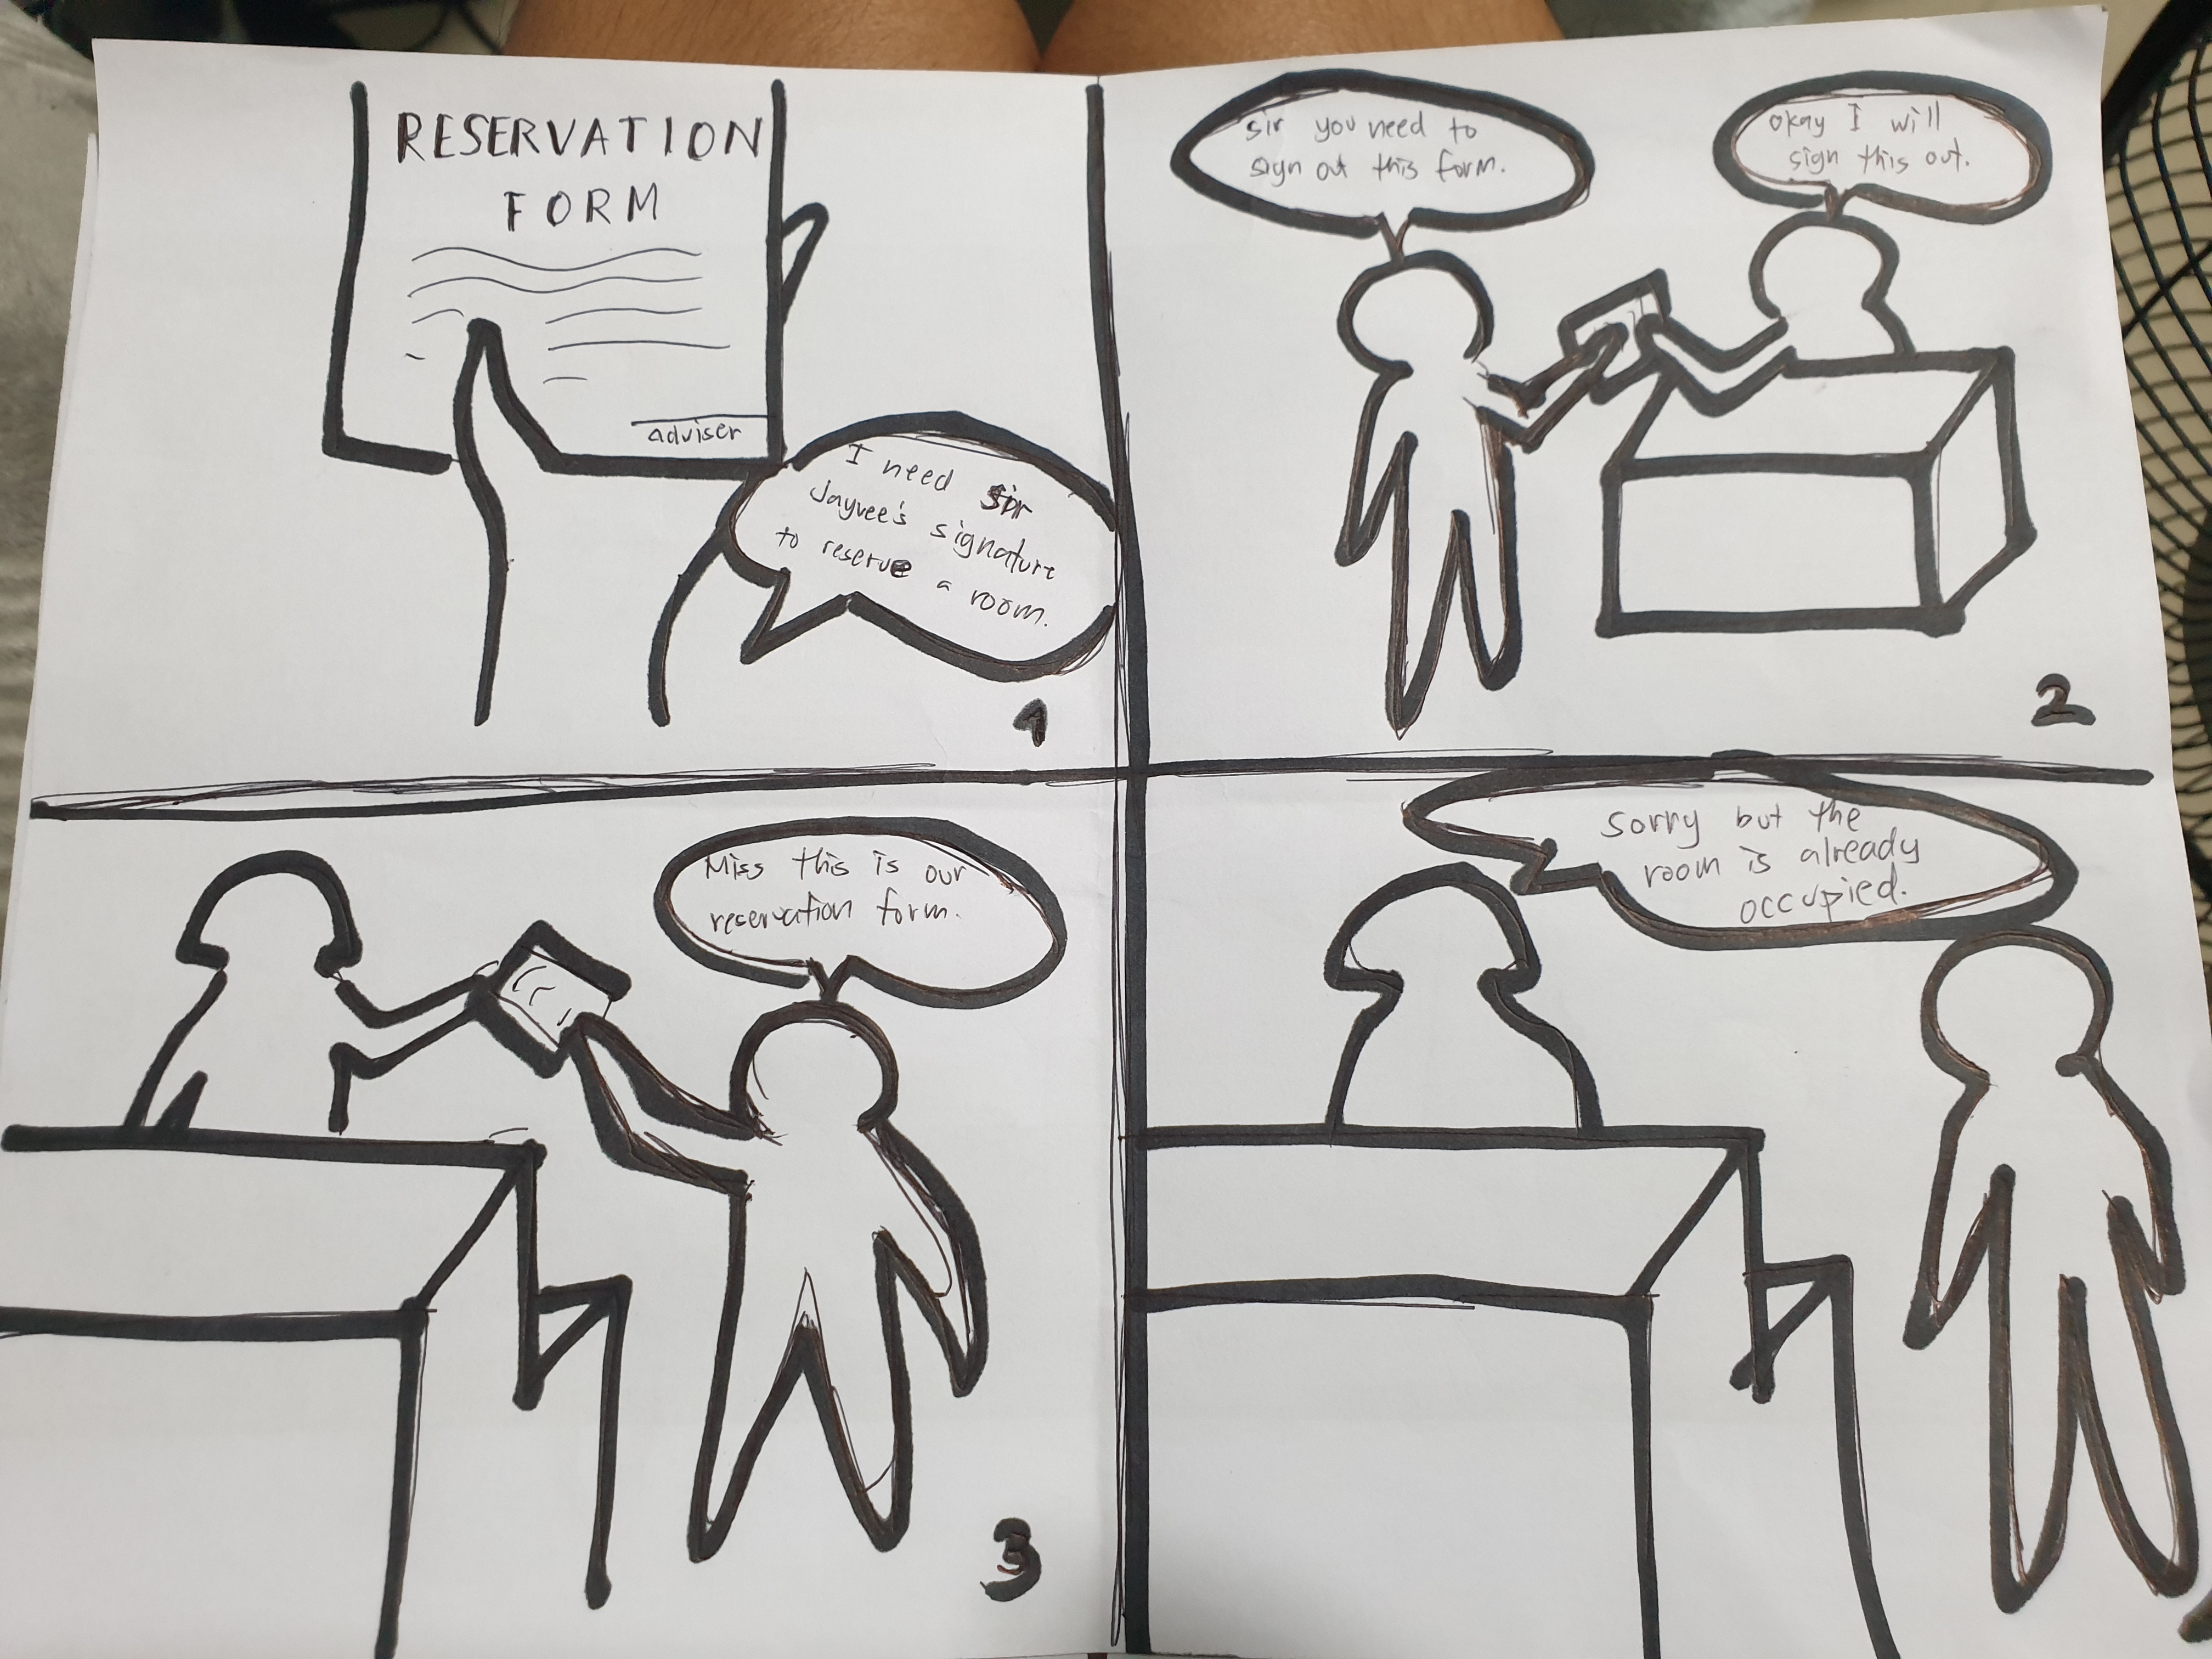 RESERVATION
FORM
adviser
I need sir
Jayvee's signature
to reserve a room.
1
sir you need to
sign out this form.
okay I will
sign this out.
2
Miss this is our
reservation form.
3
Sorry but the
room is already
occupied.